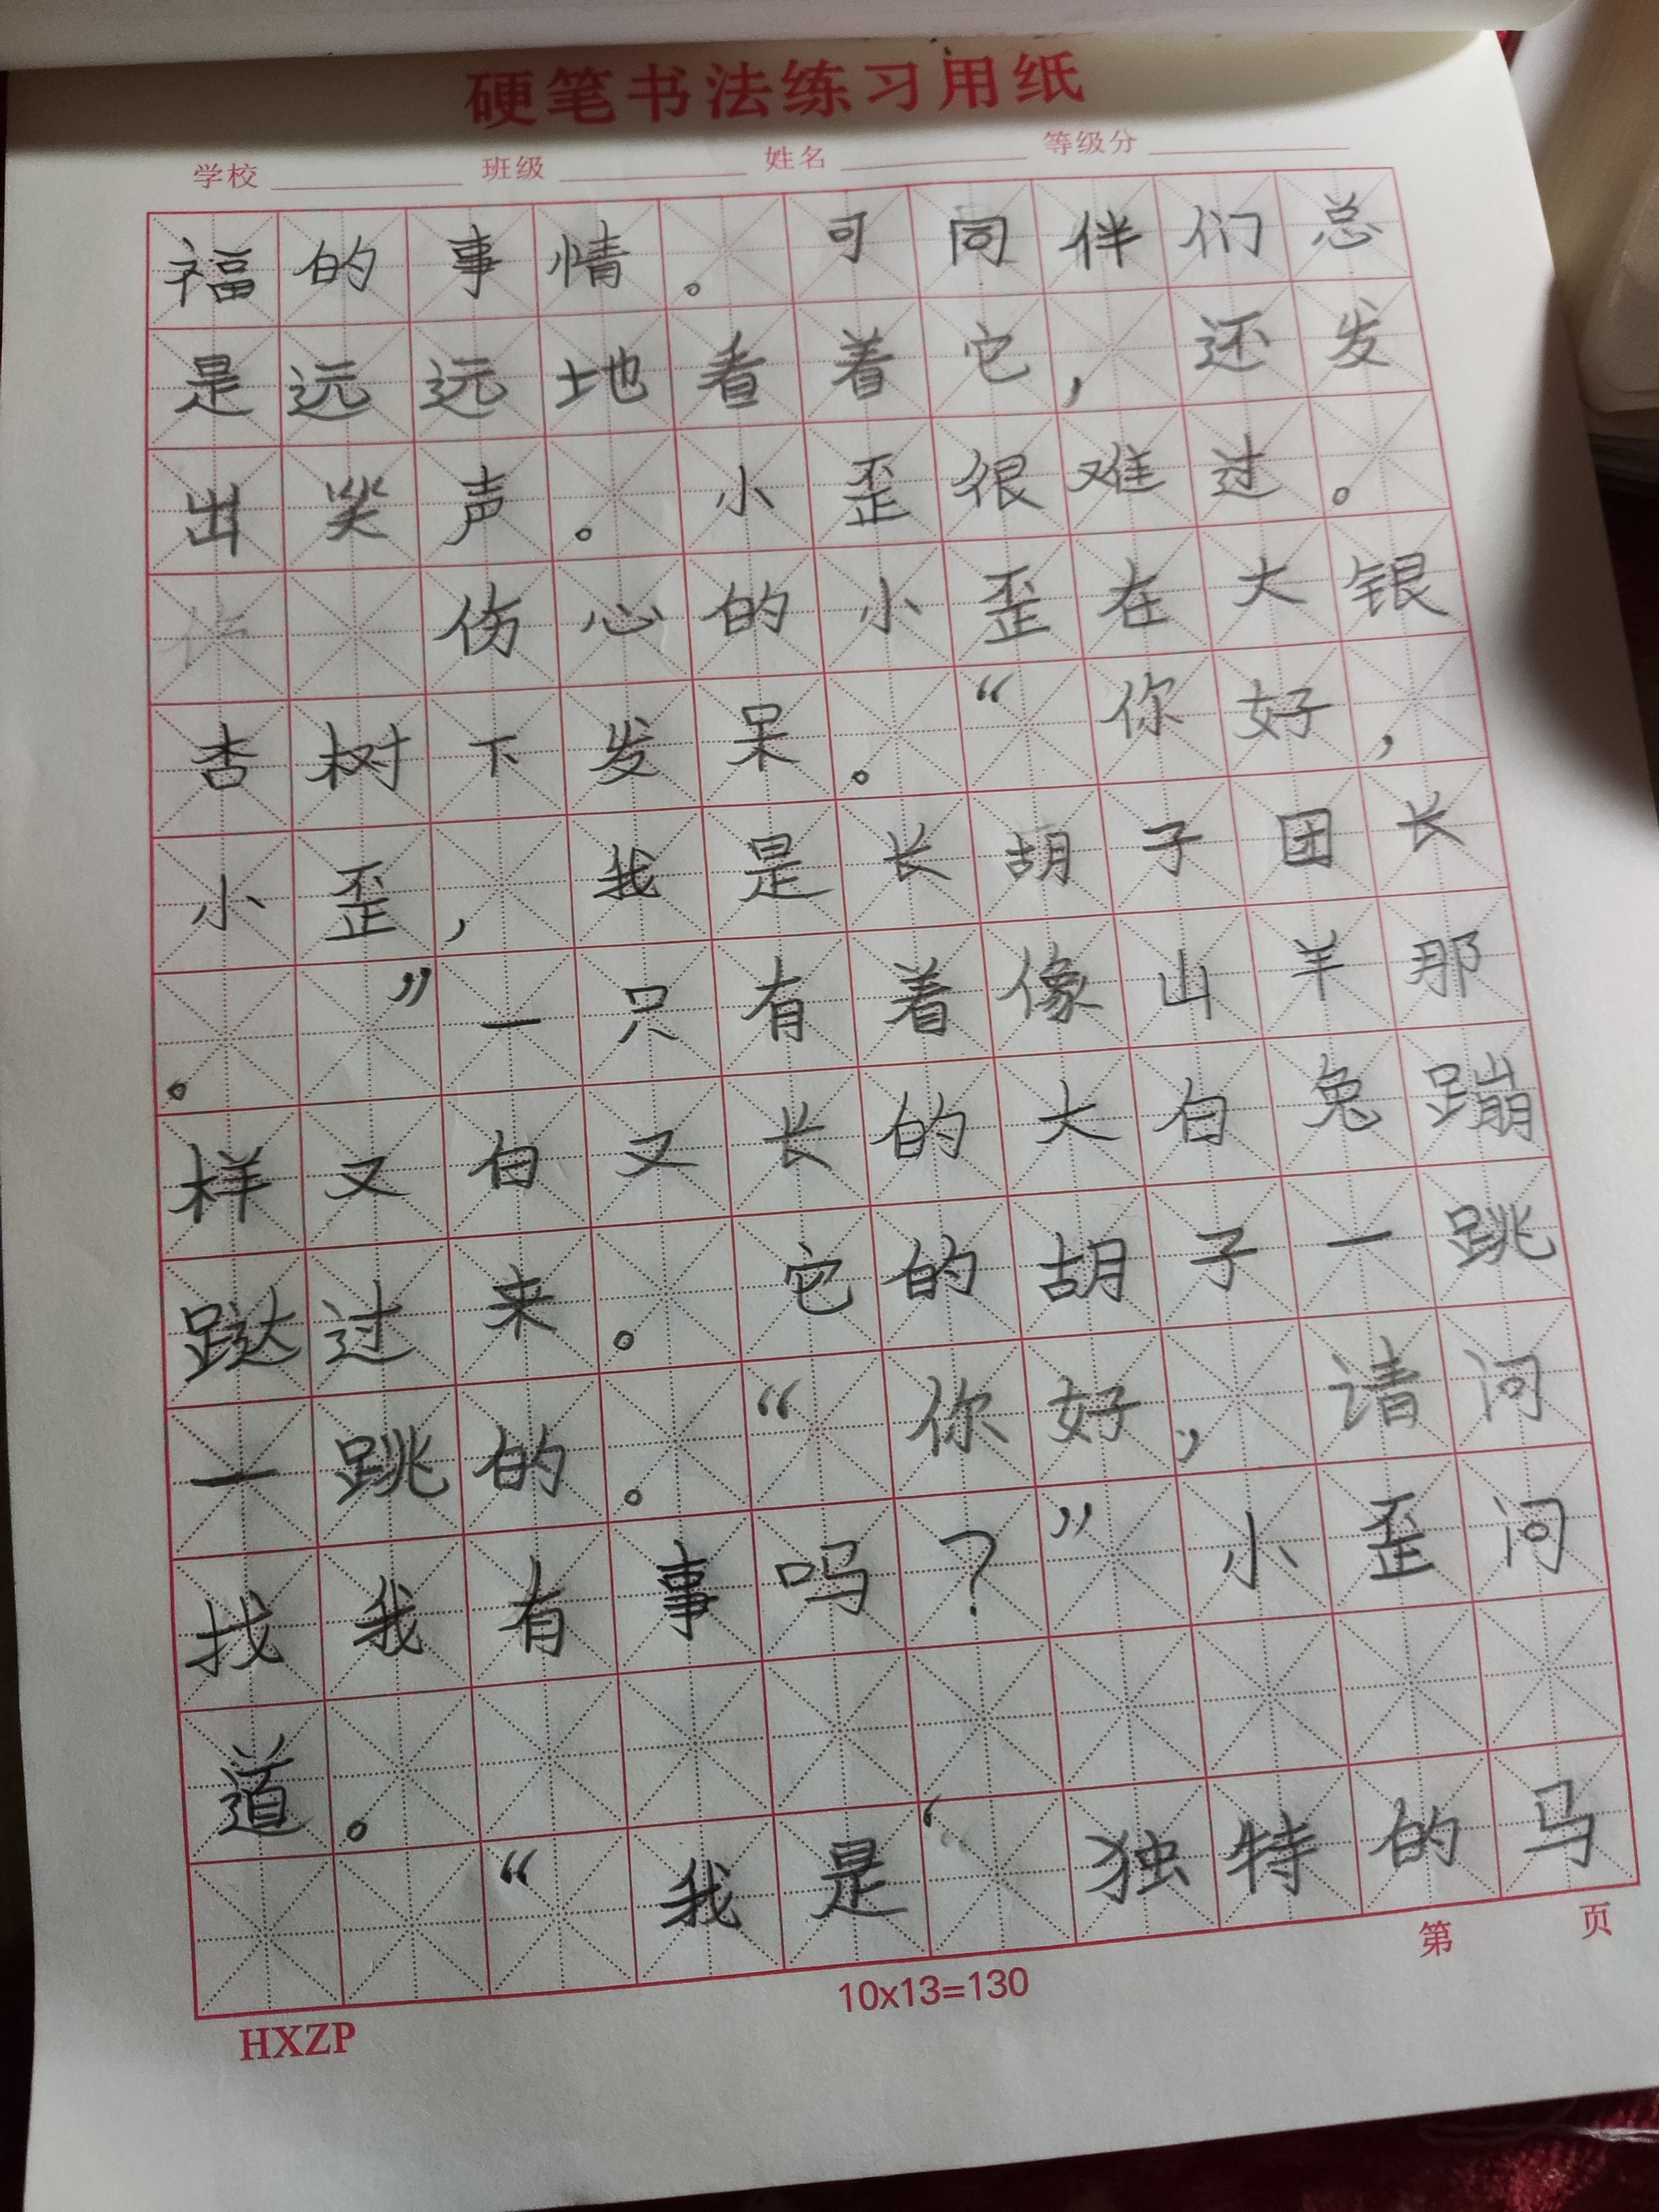 硬笔书法练习用纸
学校 班级 姓名 等级分
福的事情。可同伴们总
是远远地看着它，还发
出笑声。小歪很难过。
伤心的小歪在大银
杏树下发呆。“你好，
小歪，我是长胡子团长
。”一只有着像山羊那
样又白又长的大白兔蹦
跶过来。它的胡子一跳
一跳的。“你好，请问
找我有事吗？”小歪问
道。
“我是‘独特的马
第 页
10x13=130
HXZP